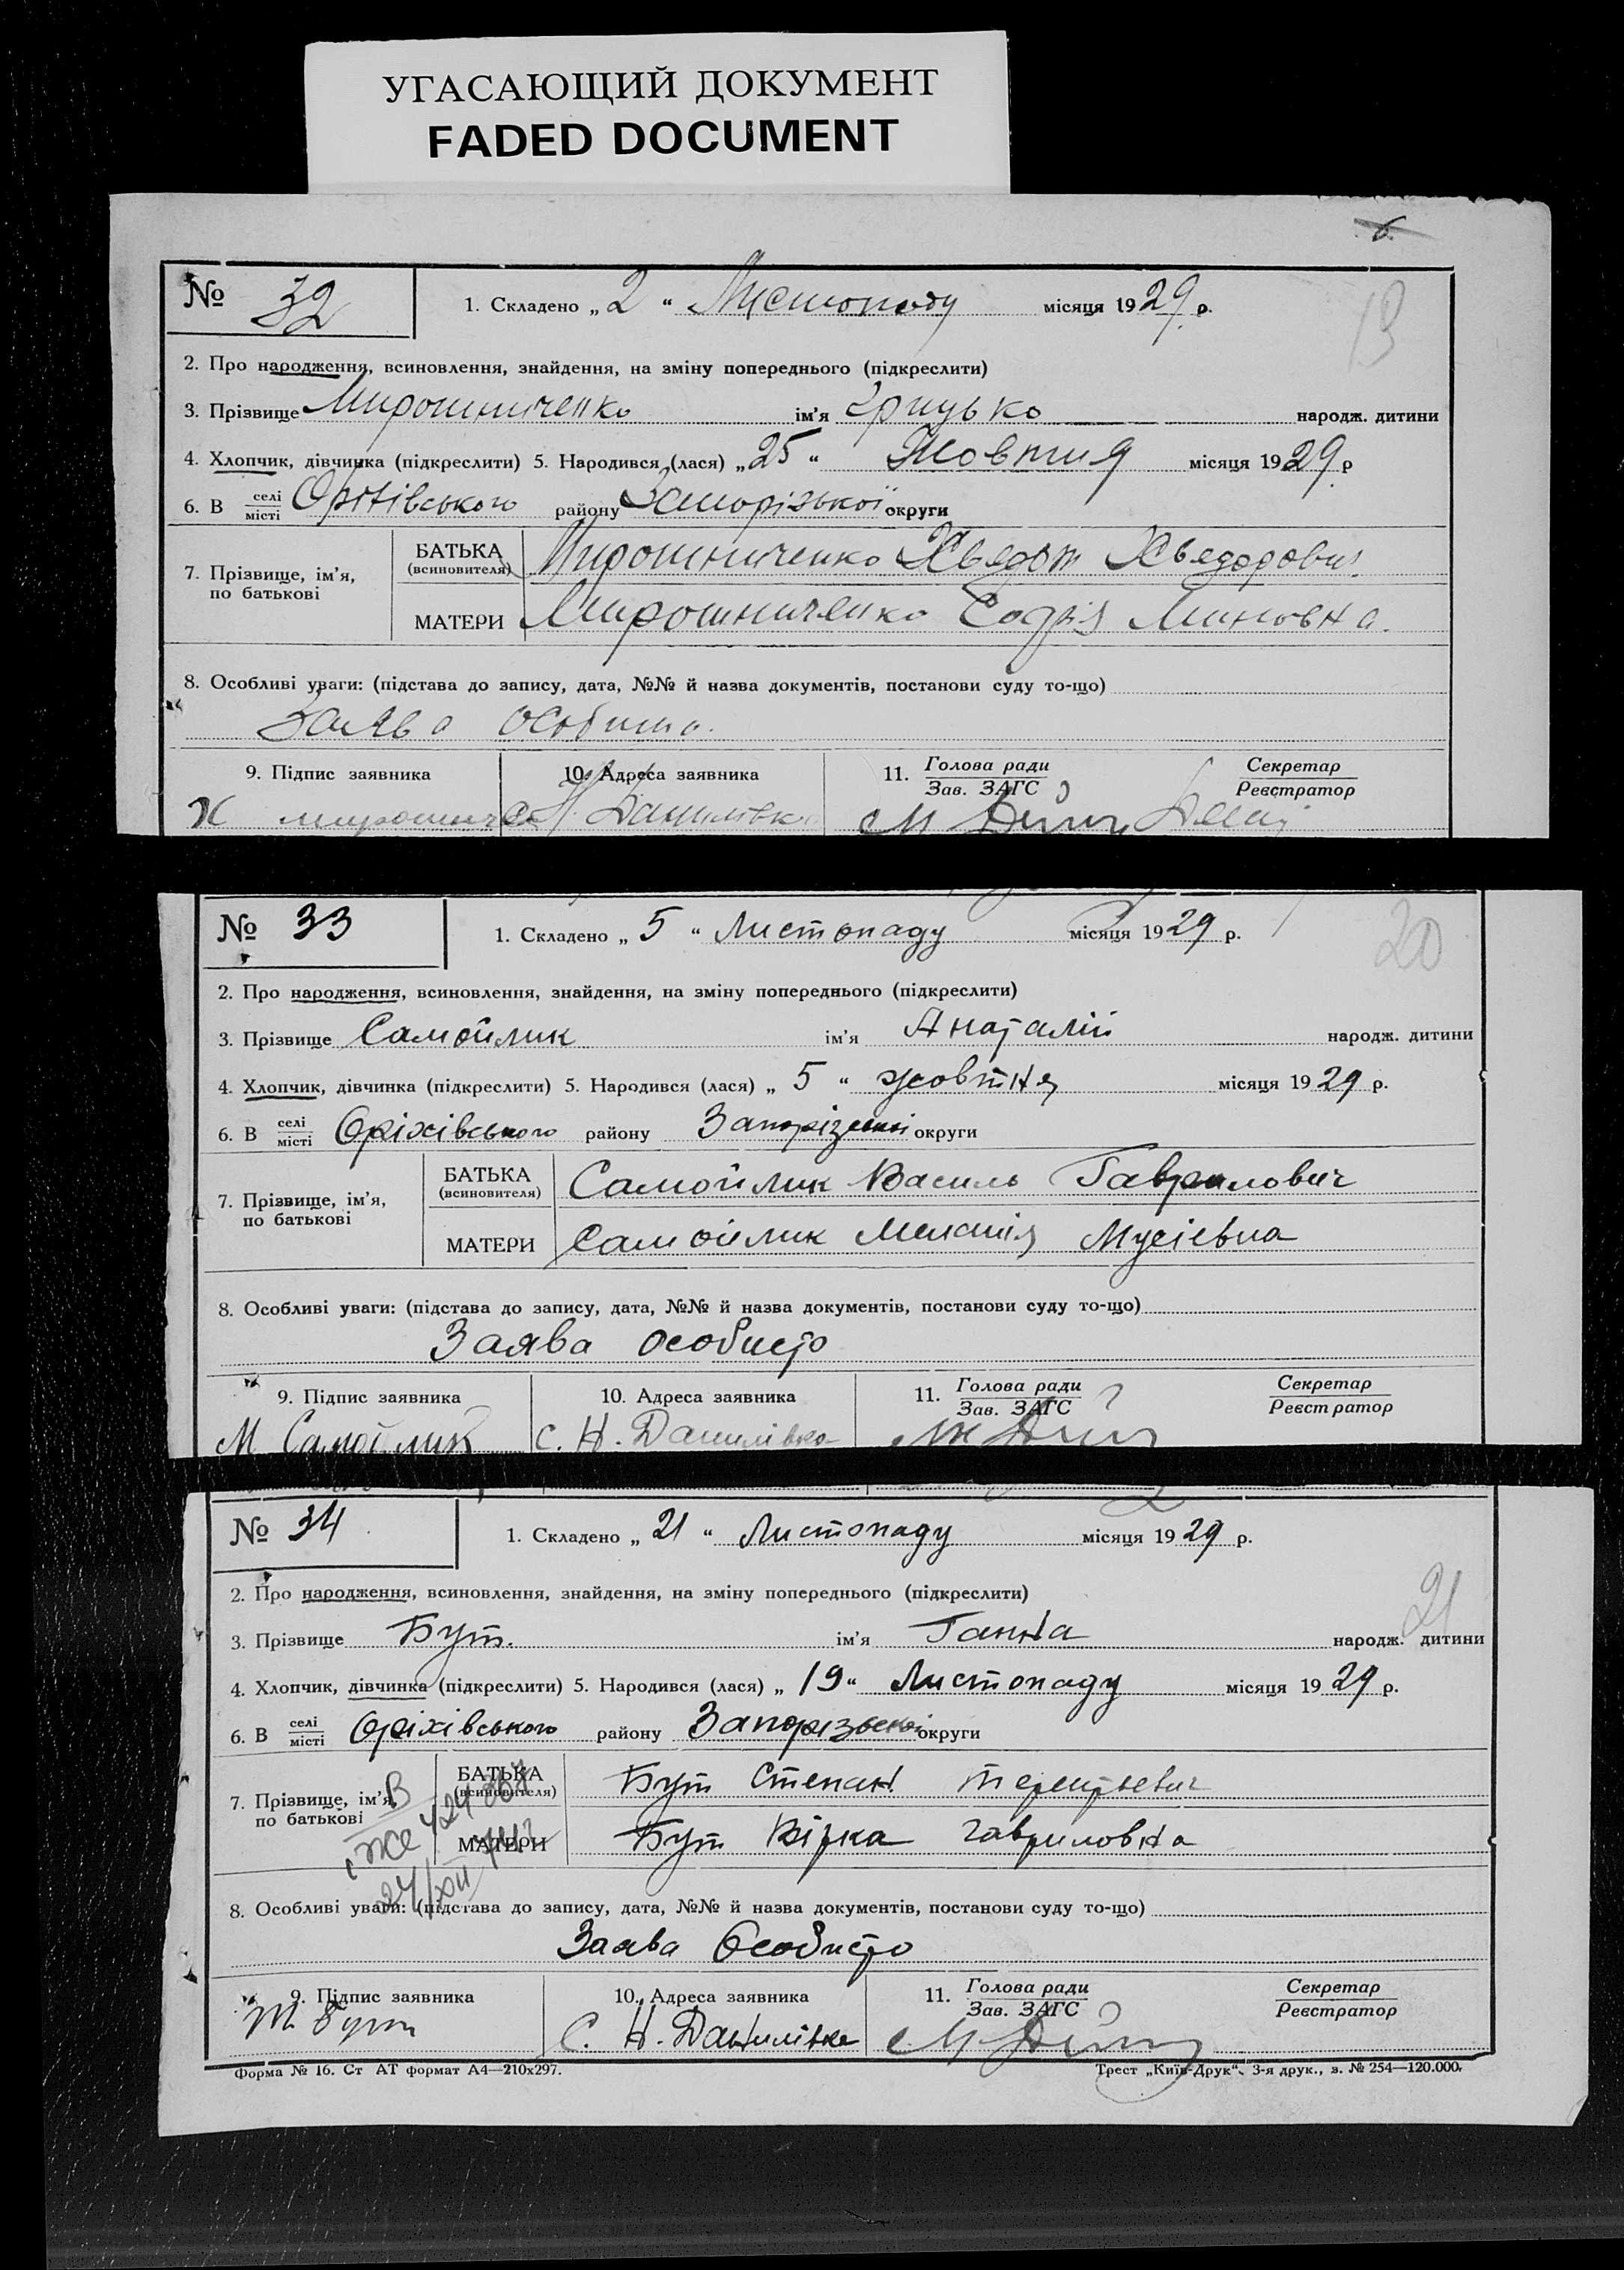 УГАСАЮЩИЙ ДОКУМЕНТ
FADED DOCUMENT
№ 32
1. Складено „ 2 “ Листопаду місяця 1929 р.
2. Про народження, всиновлення, знайдення, на зміну попереднього (підкреслити)
3. Прізвище Мирошниченко ім'я Грицько народж. дитини
4. Хлопчик, дівчинка (підкреслити) 5. Народився (лася) „ 25 “ Жовтня місяця 1929 р
6. В селі місті Оріхівського району Запорізької округи
7. Прізвище, ім'я, по батькові
БАТЬКА (всиновителя) Мирошниченко Хведот Хведорович
МАТЕРИ Мирошниченко Софія Миновна.
8. Особливі уваги: (підстава до запису, дата, №№ й назва документів, постанови суду то-що)
Заява особисто.
9. Підпис заявника 10. Адреса заявника 11. Голова ради Зав. ЗАГС Секретар Реєстратор
Х Н. Данилівка
№ 33
20
1. Складено „ 5 “ Листопаду місяця 1929 р.
2. Про народження, всиновлення, знайдення, на зміну попереднього (підкреслити)
3. Прізвище Самойлик ім'я Анаталій народж. дитини
4. Хлопчик, дівчинка (підкреслити) 5. Народився (лася) „ 5 “ жовтня місяця 1929 р.
6. В селі місті Оріхівського району Запорізької округи
7. Прізвище, ім'я, по батькові
БАТЬКА (всиновителя) Самойлик Василь Гаврилович
МАТЕРИ Самойлик Меланія Мусієвна
8. Особливі уваги: (підстава до запису, дата, №№ й назва документів, постанови суду то-що)
Заява особисто
9. Підпис заявника 10. Адреса заявника 11. Голова ради Зав. ЗАГС Секретар Реєстратор
М Самойлик с. Н. Данилівка
№ 34
21
1. Складено „ 21 “ Листопаду місяця 1929 р.
2. Про народження, всиновлення, знайдення, на зміну попереднього (підкреслити)
3. Прізвище Бут. ім'я Ганна народж. дитини
4. Хлопчик, дівчинка (підкреслити) 5. Народився (лася) „ 19 “ Листопаду місяця 1929 р.
6. В селі місті Оріхівського району Запорізької округи
7. Прізвище, ім'я, по батькові
БАТЬКА (всиновителя) Бут Степан Терентьевич
МАТЕРИ Бут Вірка Гавриловна
8. Особливі уваги: (підстава до запису, дата, №№ й назва документів, постанови суду то-що)
Заява Особисто
9. Підпис заявника 10. Адреса заявника 11. Голова ради Зав. ЗАГС Секретар Реєстратор
Бут С. Н. Данилівка
Форма № 16. Ст АТ формат А4—210х297. Трест „Київ-Друк“. 3-я друк., з. № 254—120.000.